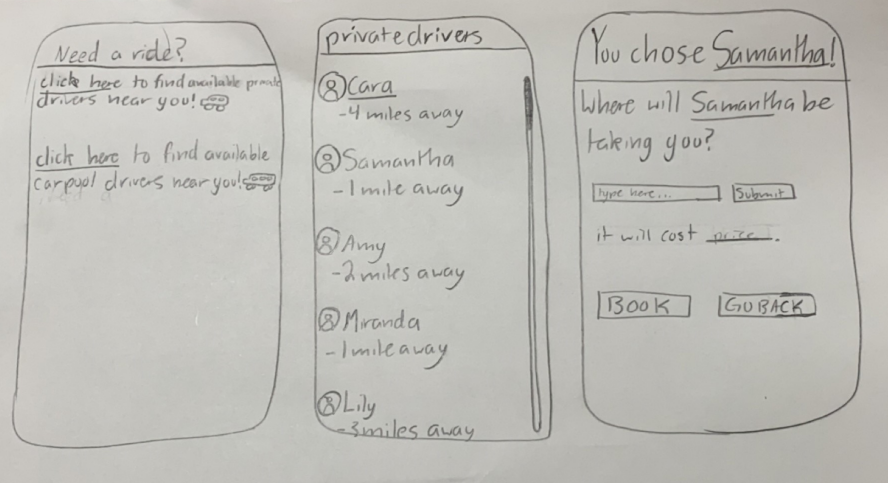 Need a ride?
click here to find available private
drivers near you!
click here to find available
carpool drivers near you!
private drivers
Cara
-4 miles away
Samantha
-1 mile away
Amy
-2 miles away
Miranda
-1 mile away
Lily
-3 miles away
You chose Samantha!
Where will Samantha be
taking you?
type here...
Submit
it will cost price.
BOOK
GO BACK